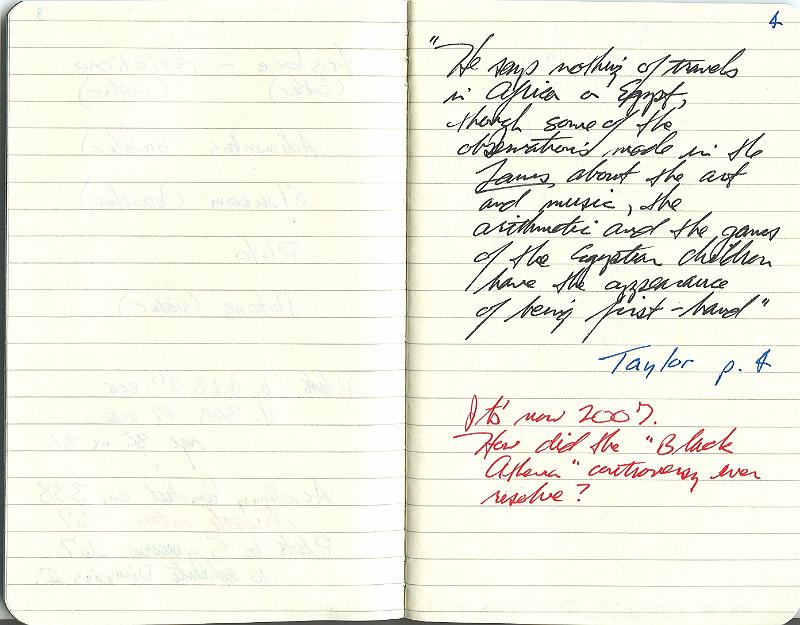 4
"He says nothing of travels
in Africa or Egypt,
though some of the
observations made in the
Laws, about the art
and music, the
arithmetic and the games
of the Egyptian children
have the appearance
of being first-hand"
Taylor p. 4
It's now 2007.
How did the "Black
Athena" controversy ever
resolve?